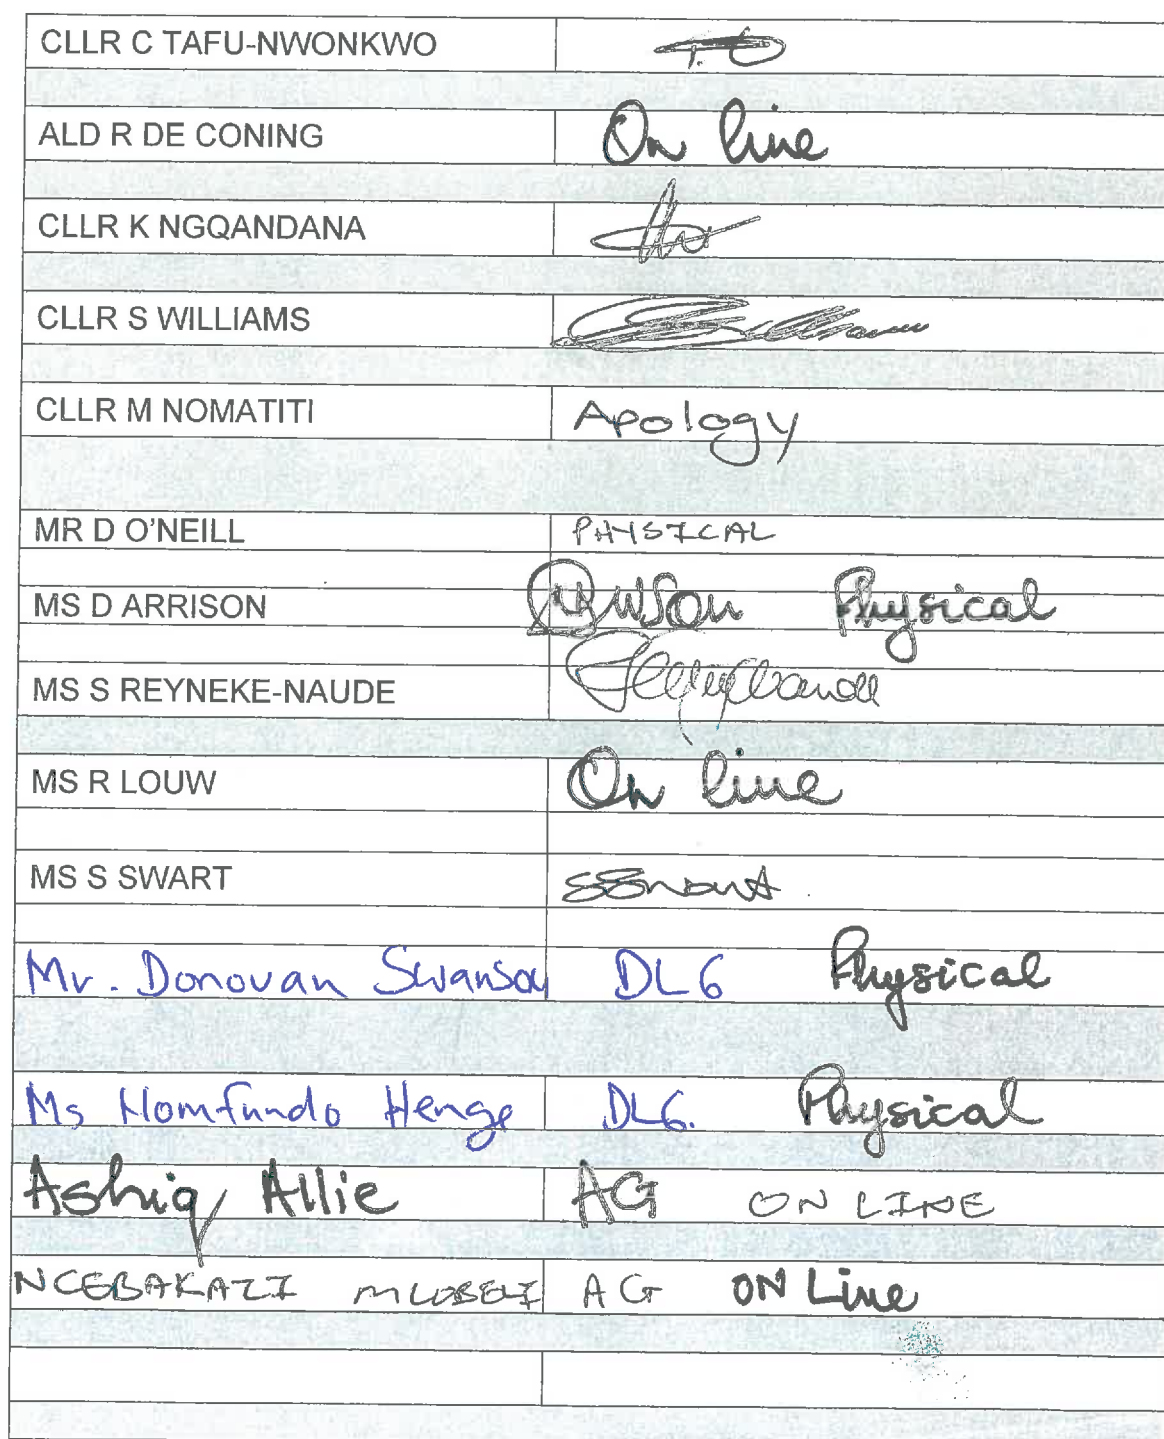 CLLR C TAFU-NWONKWO
ALD R DE CONING On line
CLLR K NGQANDANA
CLLR S WILLIAMS
CLLR M NOMATITI Apology
MR D O'NEILL PHYSICAL
MS D ARRISON Physical
MS S REYNEKE-NAUDE
MS R LOUW On line
MS S SWART SSwart
Mr. Donovan Swanson DLG Physical
Ms Nomfundo Henge DLG. Physical
Ashiq Allie AG ON LINE
NCEBAKAZI AG ON Line